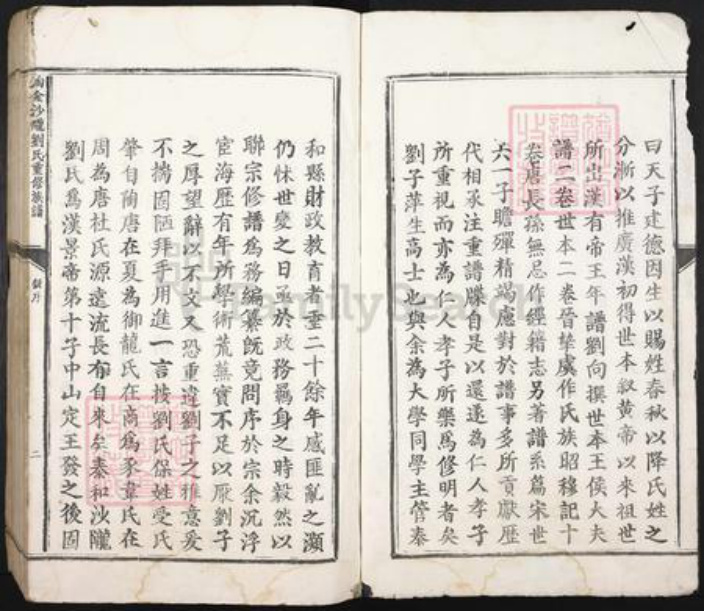 曰天子建德因生以賜姓春秋以降氏姓之
分淅以推廣漢初得世本叙黄帝以來祖世
所出漢有帝王年譜劉向撰世本王侯大夫
譜二卷世本二卷晉摯虞作氏族昭穆記十
卷唐長孫無忌作經籍志另著譜系篇宋世
六一子瞻殫精竭慮對於譜事多所貢獻歷
代相承注重譜牒自是以還遂為仁人孝子
所重視而亦為仁人孝子所樂為修明者矣
劉子萍生高士也與余為大學同學主管泰
和縣財政教育者垂二十餘年感匪亂之瀕
仍怵世變之日亟於政務羈身之時毅然以
聯宗修譜為務編纂既竟問序於宗余沉浮
宦海歷有年所學術荒蕪實不足以厭劉子
之厚望辭以不文又恐重違劉子之雅意爰
不揣固陋拜手用進一言按劉氏保姓受氏
肇自陶唐在夏為御龍氏在商為豕韋氏在
周為唐杜氏源遠流長有自來矣泰和沙隴
劉氏為漢景帝第十子中山定王發之後因
淘金沙隴劉氏重修族譜
二
FamilySearch